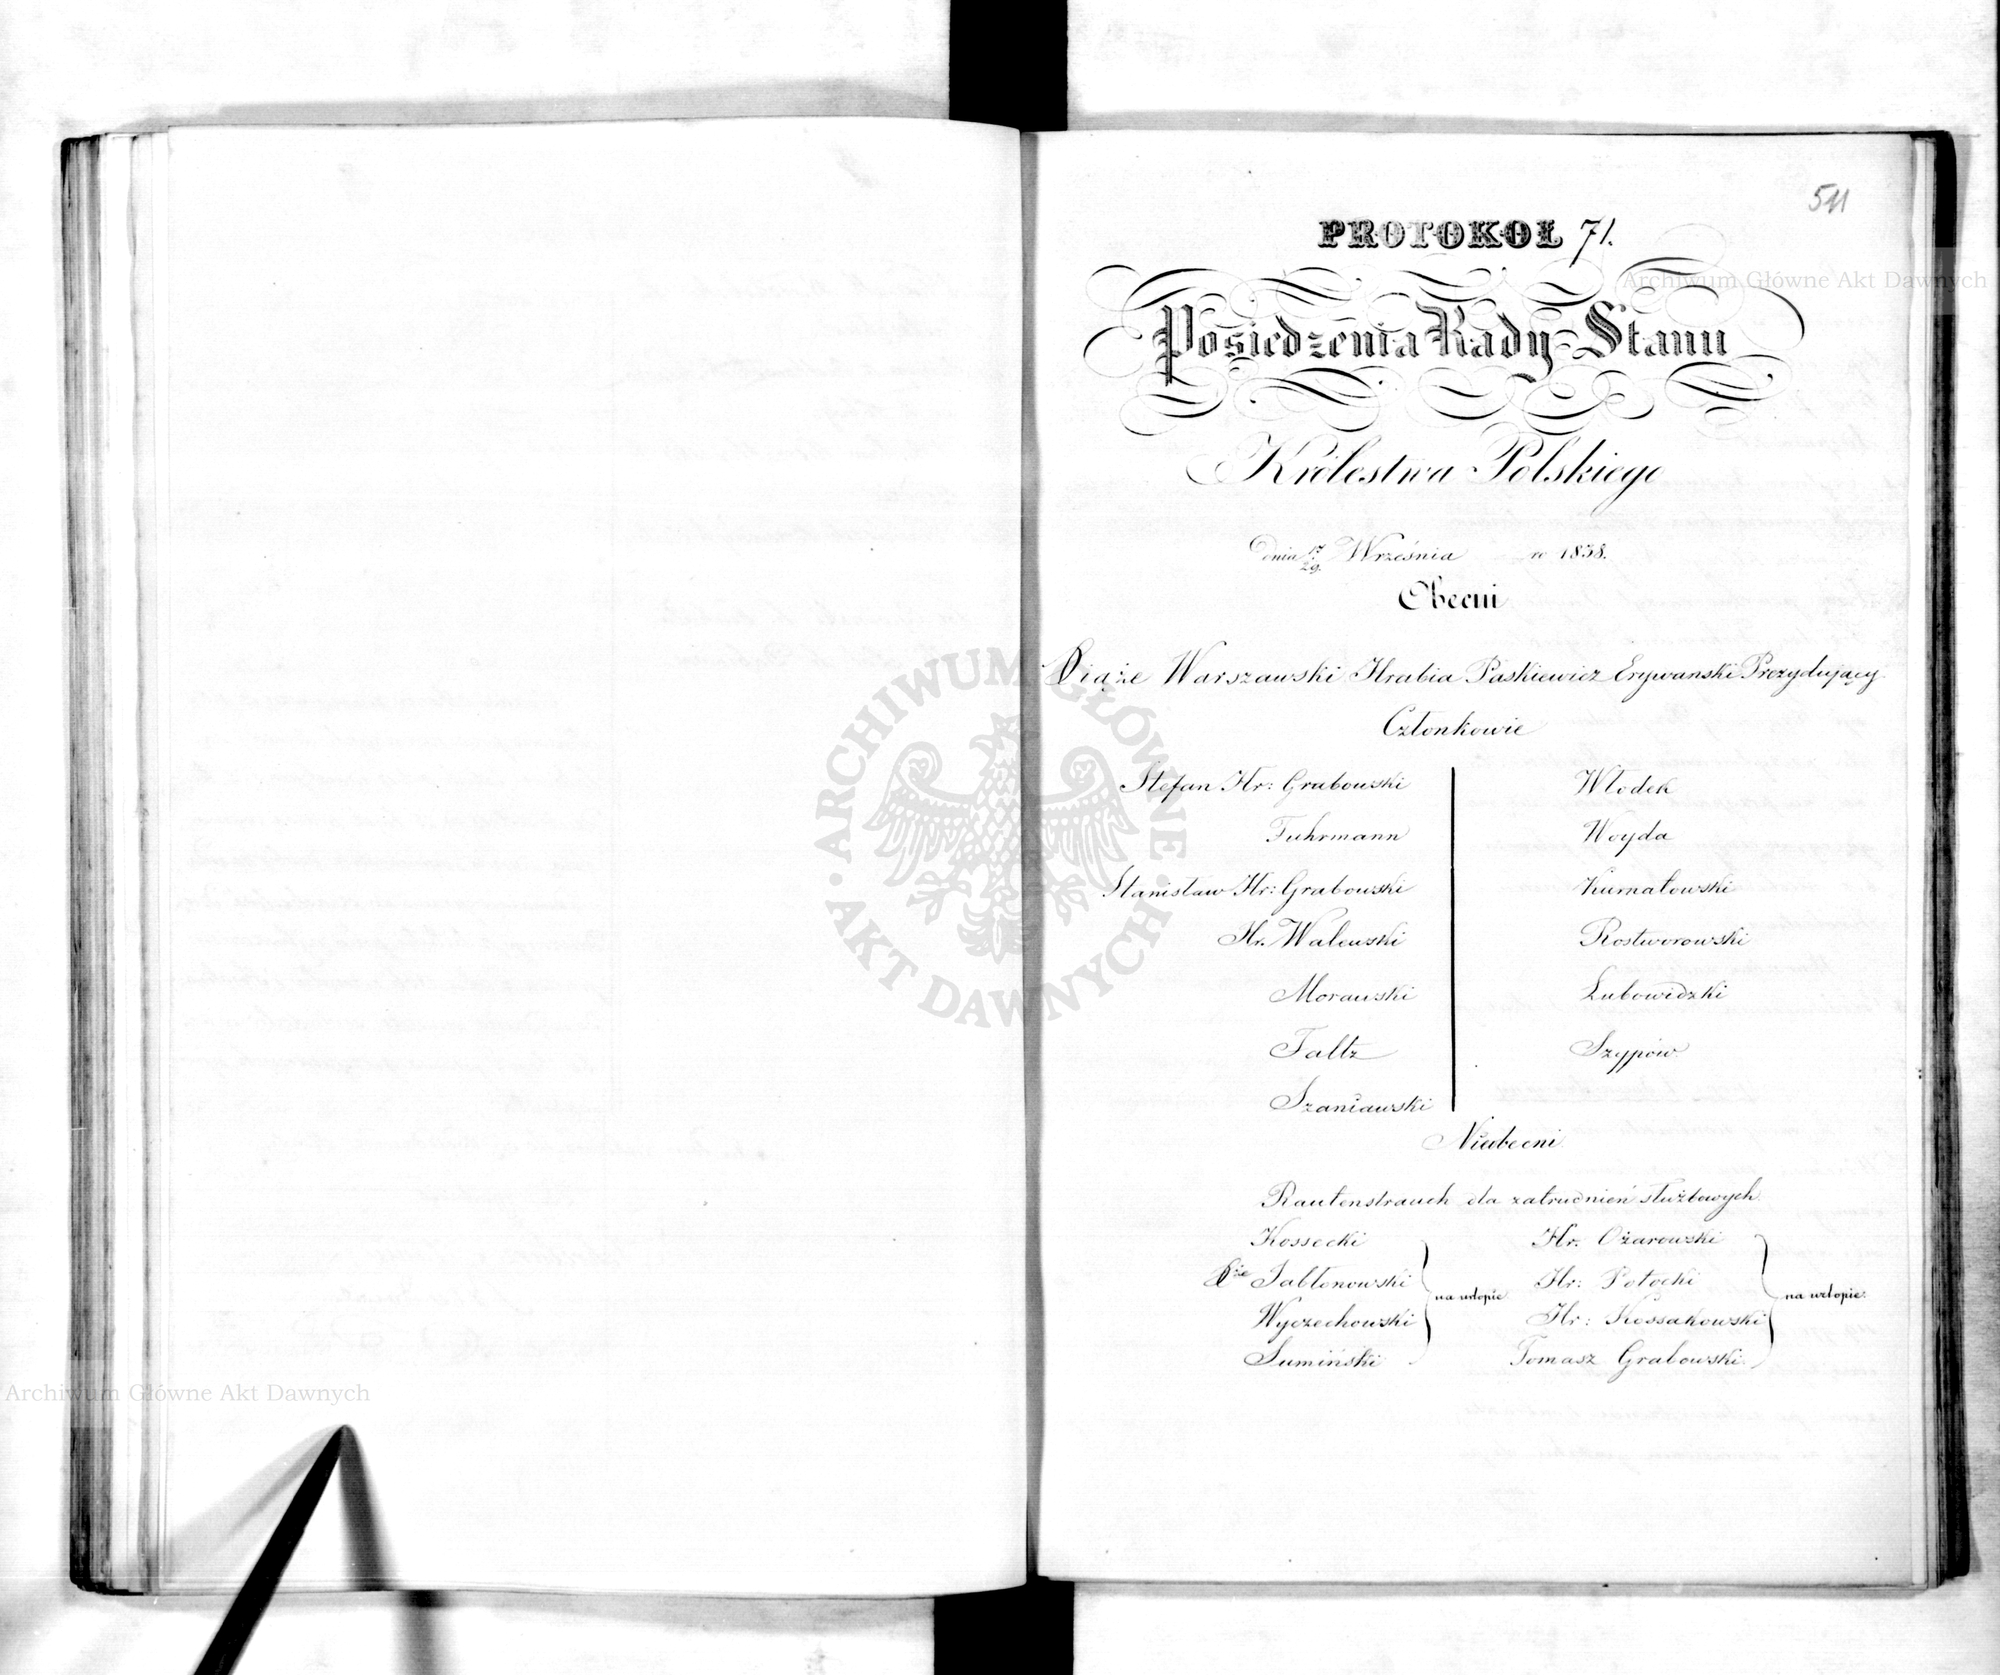 511
PROTOKOŁ 71.
Posiedzenia Rady Stanu
Królestwa Polskiego
Dnia 17/29. Września ro 1838.
Obecni
Xiąże Warszawski Hrabia Paskiewicz Erywański Prezydujący
Członkowie
Stefan Hr: Grabowski Włodek
Fuhrmann Woyda
Stanisław Hr: Grabowski Kurnatowski
Hr. Walewski Rostworowski
Morawski Lubowidzki
Faltz Szypów
Szaniawski
Nieobecni
Rautenstrauch dla zatrudnień służbowych
Kossecki Hr. Ożarowski
Xże Jabłonowski Hr: Potocki
na urlopie na urlopie
Wyczechowski Hr: Kossakowski
Sumiński Tomasz Grabowski
Archiwum Główne Akt Dawnych
Archiwum Główne Akt Dawnych
ARCHIWUM GŁÓWNE AKT DAWNYCH